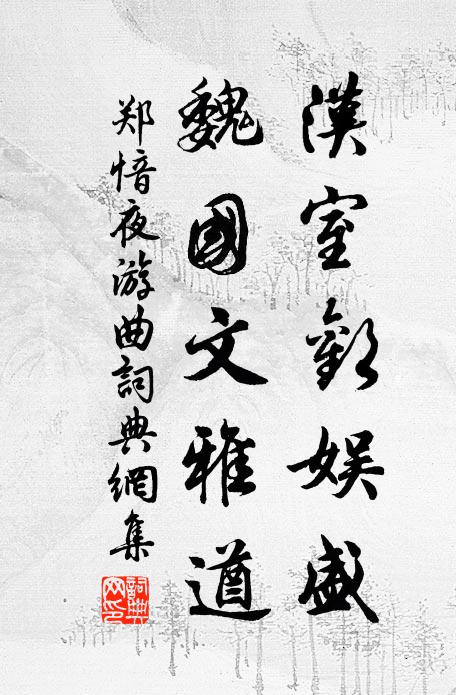 漢室歡娛盛
魏國文雅遒
郑愔夜游曲詞典網集
詞典网印